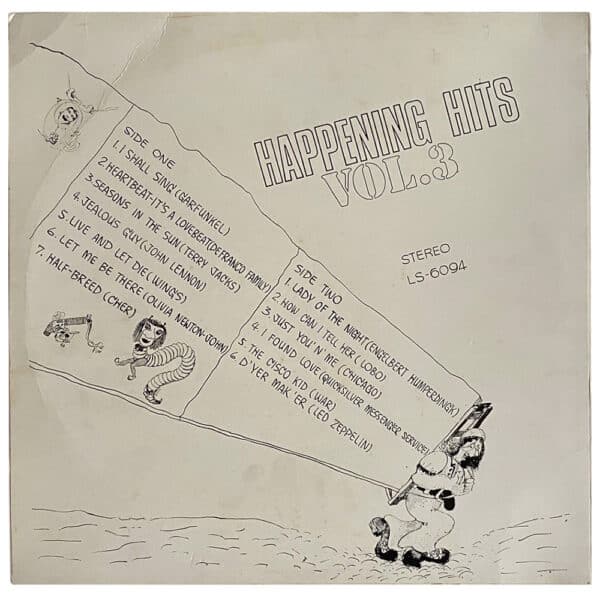 HAPPENING HITS
VOL.3
STEREO
LS-6094
SIDE ONE
1. I SHALL SING (GARFUNKEL)
2. HEARTBEAT-IT'S A LOVEBEAT (DEFRANCO FAMILY)
3. SEASONS IN THE SUN (TERRY JACKS)
4. JEALOUS GUY (JOHN LENNON)
5. LIVE AND LET DIE (WINGS)
6. LET ME BE THERE (OLIVIA NEWTON-JOHN)
7. HALF-BREED (CHER)
SIDE TWO
1. LADY OF THE NIGHT (ENGELBERT HUMPERDINGK)
2. HOW CAN I TELL HER (LOBO)
3. JUST YOU'N ME (CHICAGO)
4. I FOUND LOVE (QUICKSILVER MESSENGER SERVICE)
5. THE CISCO KID (WAR)
6 D'YER MAK'ER (LED ZEPPELIN)